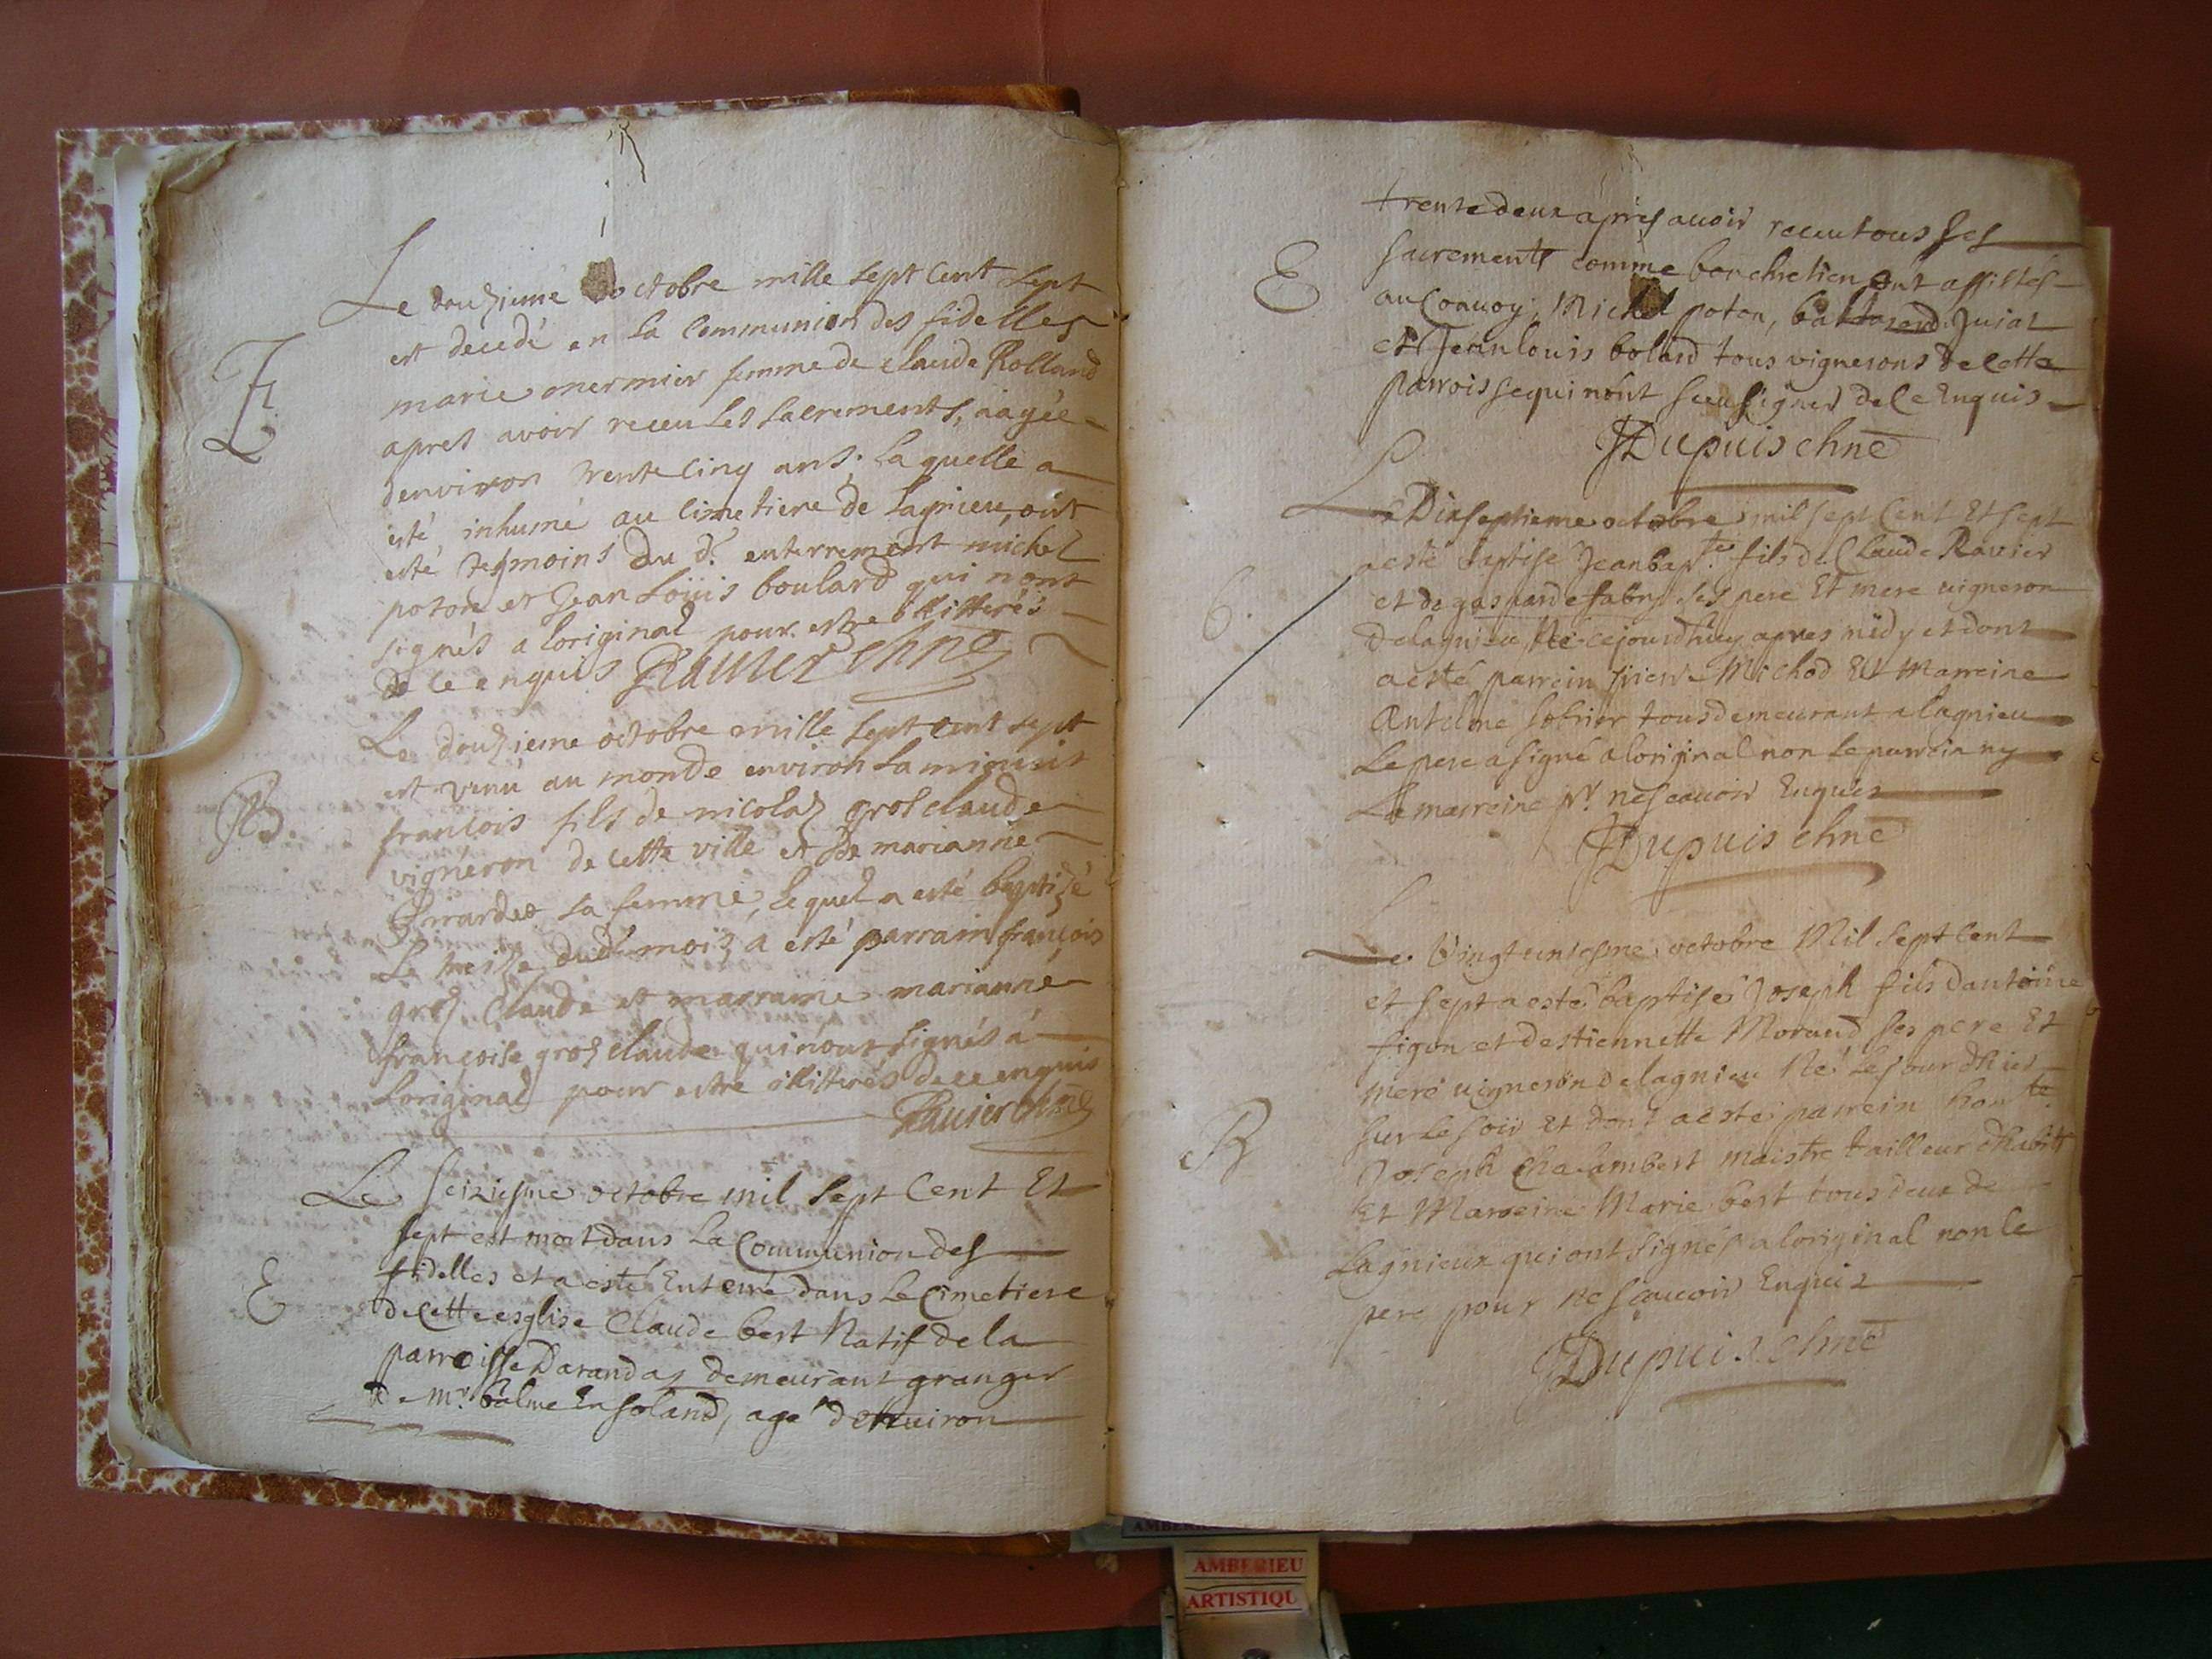 Le douzieme octobre mille sept cent sept
est decedé en la Communion des fidelles
marie mermier femme de claude Rolland
apres avoir receu les sacrements, aagée
denviron trente cinq ans; laquelle a
esté inhumé au cimetiere de lagnieu, ont
esté tesmoins du d.t enterrement michel
poton et Jean Loüis boulard qui n'ont
signés a loriginal pour estre illitterés
de ce enquis Ravier
E
Le douzieme octobre mille sept cent sept
est venu au monde environ la minuit
francois fils de nicolaz gros claude
vigneron de cette ville et de marianne
sa femme, lequel a esté baptizé
le treize dud.t mois, a esté parrain françois
groz claude et marraine marianne
françoise groz claude qui n'ont signés à
loriginal pour estre illitterés de ce enquis
Ravier
B.
Le seiziesme octobre mil sept Cent Et
sept est mort dans la Communion des
fidelles et a esté Enterré dans le Cimetiere
de cette esglise Claude bert Natif de la
parroisse Darandas demeurant granger
de Mr. balme En soland, agé d'Enuiron
E
trente deux apres auoir receu tous ses
sacrements comme bon chretien ont assistés
au Conuoy; Michel poton, Juiat
et Jean louis bolard tous vignerons de cette
parroisse qui n'ont sceu signer de Ce Enquis
E
Dupuis
Le Dixseptieme octobre mil sept Cent Et sept
a esté baptisé Jean bap.te fils de Claude Ravier
et de gasparde fabry ses pere Et mere vigneron
de lagnieu, Né cejourdhuy apres midy et dont
a esté parrein Michod Et Marreine
Antelme sobrier tous demeurant a lagnieu
Le pere a signé a loriginal non le parrein ny
La marreine pr. ne scauoir Enquis
B.
Dupuis
Le Vingtuniesme octobre Mil sept Cent
et sept a esté baptisé Joseph fils dantoine
figon et destiennette Morand ses pere Et
mere vigneron de lagnieu Né le jour dhier
sur le soir Et dont a esté parrein hon.te
Joseph Chalambert maistre tailleur dhabits
Et Marreine Marie bert tous deux de
Lagnieux qui ont signés a loriginal non le
pere pour ne sçauoir Enquis
B
Dupuis
AMBERIEU
ARTISTIQU